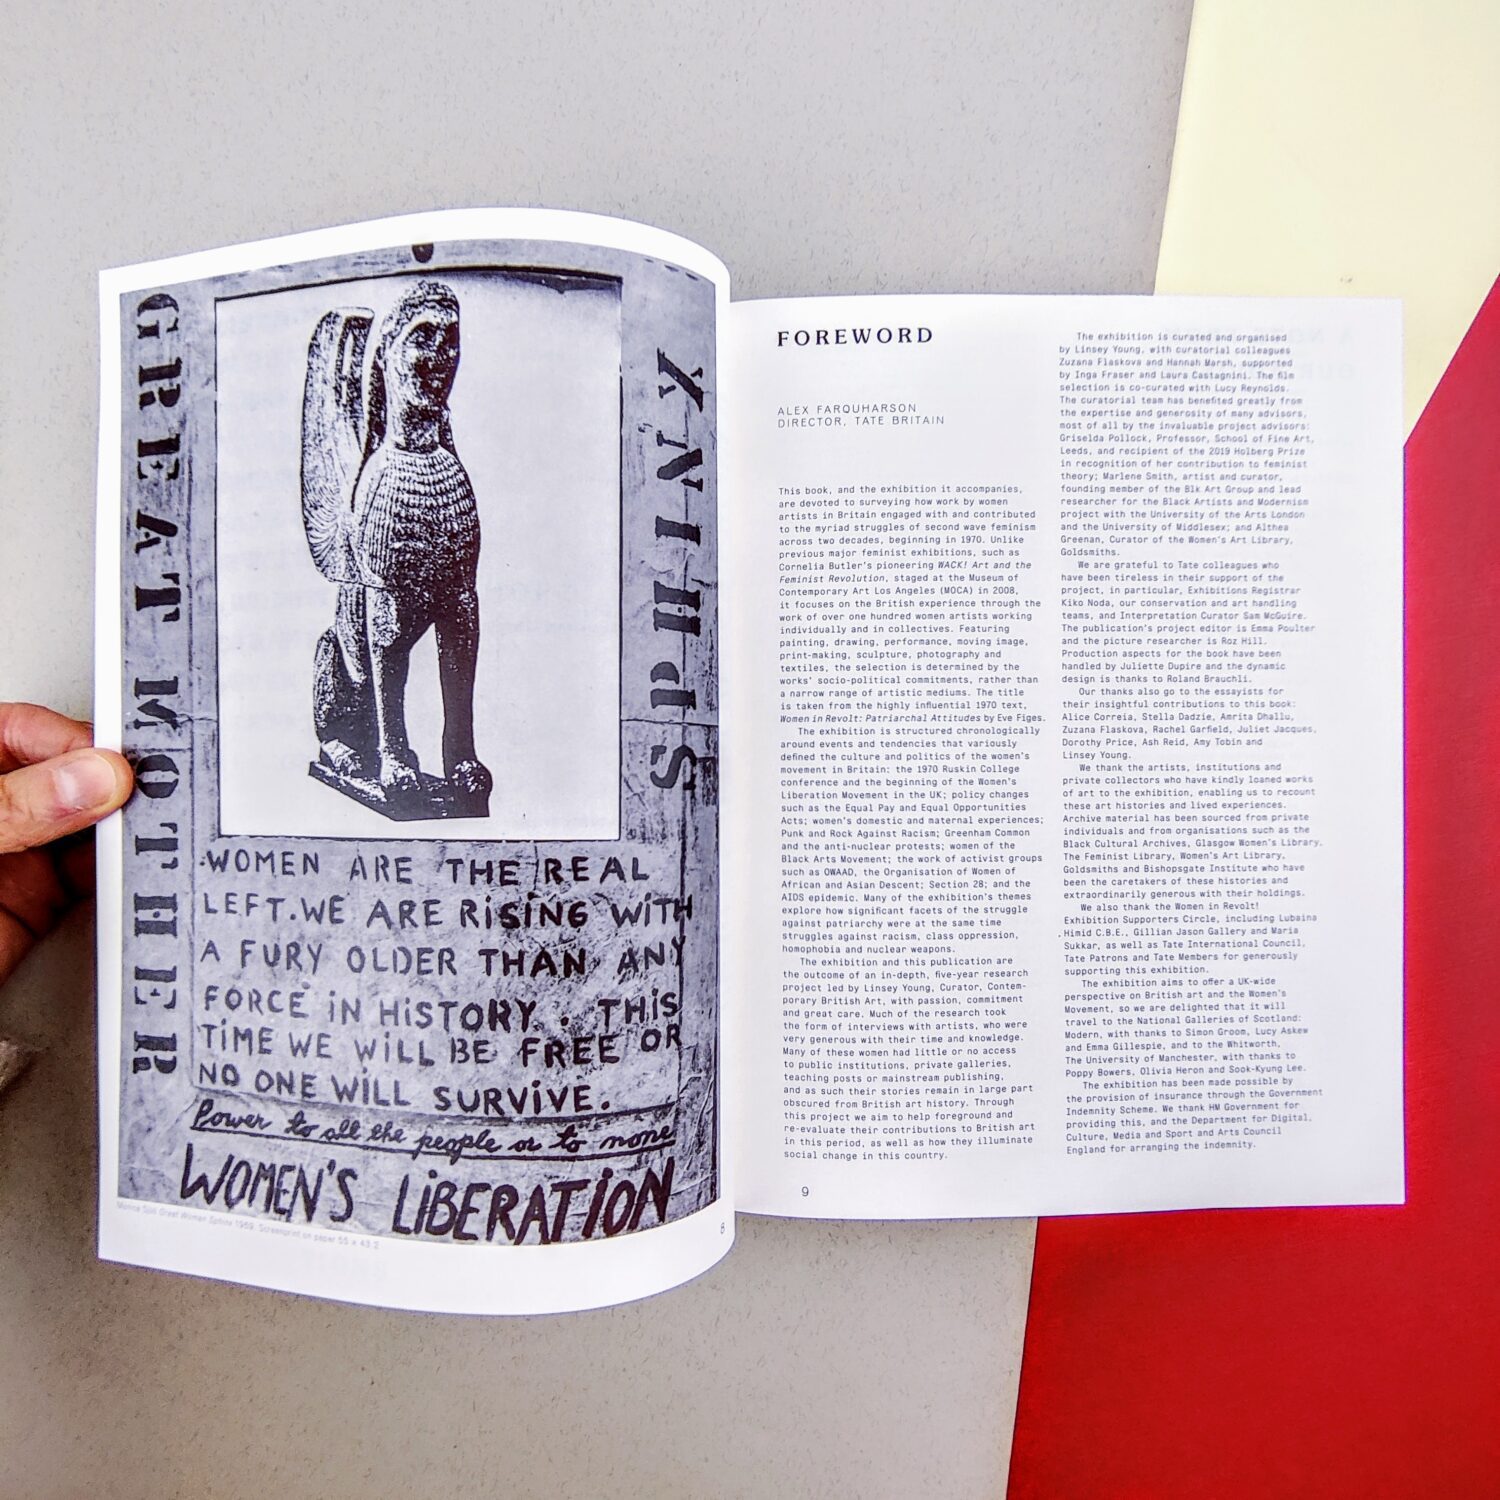 GREAT MOTHER
SPHINX
WOMEN ARE THE REAL
LEFT. WE ARE RiSiNG WiTH
A FURY OLDER THAN ANY
FORCE iN HiSTORY. THiS
TiME WE WiLL BE FREE OR
NO ONE WiLL SURViVE.
Power to all the people or to none
WOMEN'S LiBERATiON
8
FOREWORD
ALEX FARQUHARSON
DIRECTOR, TATE BRITAIN
This book, and the exhibition it accompanies,
are devoted to surveying how work by women
artists in Britain engaged with and contributed
to the myriad struggles of second wave feminism
across two decades, beginning in 1970. Unlike
previous major feminist exhibitions, such as
Cornelia Butler's pioneering WACK! Art and the
Feminist Revolution, staged at the Museum of
Contemporary Art Los Angeles (MOCA) in 2008,
it focuses on the British experience through the
work of over one hundred women artists working
individually and in collectives. Featuring
painting, drawing, performance, moving image,
print-making, sculpture, photography and
textiles, the selection is determined by the
works' socio-political commitments, rather than
a narrow range of artistic mediums. The title
is taken from the highly influential 1970 text,
Women in Revolt: Patriarchal Attitudes by Eve Figes.
The exhibition is structured chronologically
around events and tendencies that variously
defined the culture and politics of the women's
movement in Britain: the 1970 Ruskin College
conference and the beginning of the Women's
Liberation Movement in the UK; policy changes
such as the Equal Pay and Equal Opportunities
Acts; women's domestic and maternal experiences;
Punk and Rock Against Racism; Greenham Common
and the anti-nuclear protests; women of the
Black Arts Movement; the work of activist groups
such as OWAAD, the Organisation of Women of
African and Asian Descent; Section 28; and the
AIDS epidemic. Many of the exhibition's themes
explore how significant facets of the struggle
against patriarchy were at the same time
struggles against racism, class oppression,
homophobia and nuclear weapons.
The exhibition and this publication are
the outcome of an in-depth, five-year research
project led by Linsey Young, Curator, Contem-
porary British Art, with passion, commitment
and great care. Much of the research took
the form of interviews with artists, who were
very generous with their time and knowledge.
Many of these women had little or no access
to public institutions, private galleries,
teaching posts or mainstream publishing,
and as such their stories remain in large part
obscured from British art history. Through
this project we aim to help foreground and
re-evaluate their contributions to British art
in this period, as well as how they illuminate
social change in this country.
9
The exhibition is curated and organised
by Linsey Young, with curatorial colleagues
Zuzana Flaskova and Hannah Marsh, supported
by Inga Fraser and Laura Castagnini. The film
selection is co-curated with Lucy Reynolds.
The curatorial team has benefited greatly from
the expertise and generosity of many advisors,
most of all by the invaluable project advisors:
Griselda Pollock, Professor, School of Fine Art,
Leeds, and recipient of the 2019 Holberg Prize
in recognition of her contribution to feminist
theory; Marlene Smith, artist and curator,
founding member of the Blk Art Group and lead
researcher for the Black Artists and Modernism
project with the University of the Arts London
and the University of Middlesex; and Althea
Greenan, Curator of the Women's Art Library,
Goldsmiths.
We are grateful to Tate colleagues who
have been tireless in their support of the
project, in particular, Exhibitions Registrar
Kiko Noda, our conservation and art handling
teams, and Interpretation Curator Sam McGuire.
The publication's project editor is Emma Poulter
and the picture researcher is Roz Hill.
Production aspects for the book have been
handled by Juliette Dupire and the dynamic
design is thanks to Roland Brauchli.
Our thanks also go to the essayists for
their insightful contributions to this book:
Alice Correia, Stella Dadzie, Amrita Dhallu,
Zuzana Flaskova, Rachel Garfield, Juliet Jacques,
Dorothy Price, Ash Reid, Amy Tobin and
Linsey Young.
We thank the artists, institutions and
private collectors who have kindly loaned works
of art to the exhibition, enabling us to recount
these art histories and lived experiences.
Archive material has been sourced from private
individuals and from organisations such as the
Black Cultural Archives, Glasgow Women's Library,
The Feminist Library, Women's Art Library,
Goldsmiths and Bishopsgate Institute who have
been the caretakers of these histories and
extraordinarily generous with their holdings.
We also thank the Women in Revolt!
Exhibition Supporters Circle, including Lubaina
Himid C.B.E., Gillian Jason Gallery and Maria
Sukkar, as well as Tate International Council,
Tate Patrons and Tate Members for generously
supporting this exhibition.
The exhibition aims to offer a UK-wide
perspective on British art and the Women's
Movement, so we are delighted that it will
travel to the National Galleries of Scotland:
Modern, with thanks to Simon Groom, Lucy Askew
and Emma Gillespie, and to the Whitworth,
The University of Manchester, with thanks to
Poppy Bowers, Olivia Heron and Sook-Kyung Lee.
The exhibition has been made possible by
the provision of insurance through the Government
Indemnity Scheme. We thank HM Government for
providing this, and the Department for Digital,
Culture, Media and Sport and Arts Council
England for arranging the indemnity.